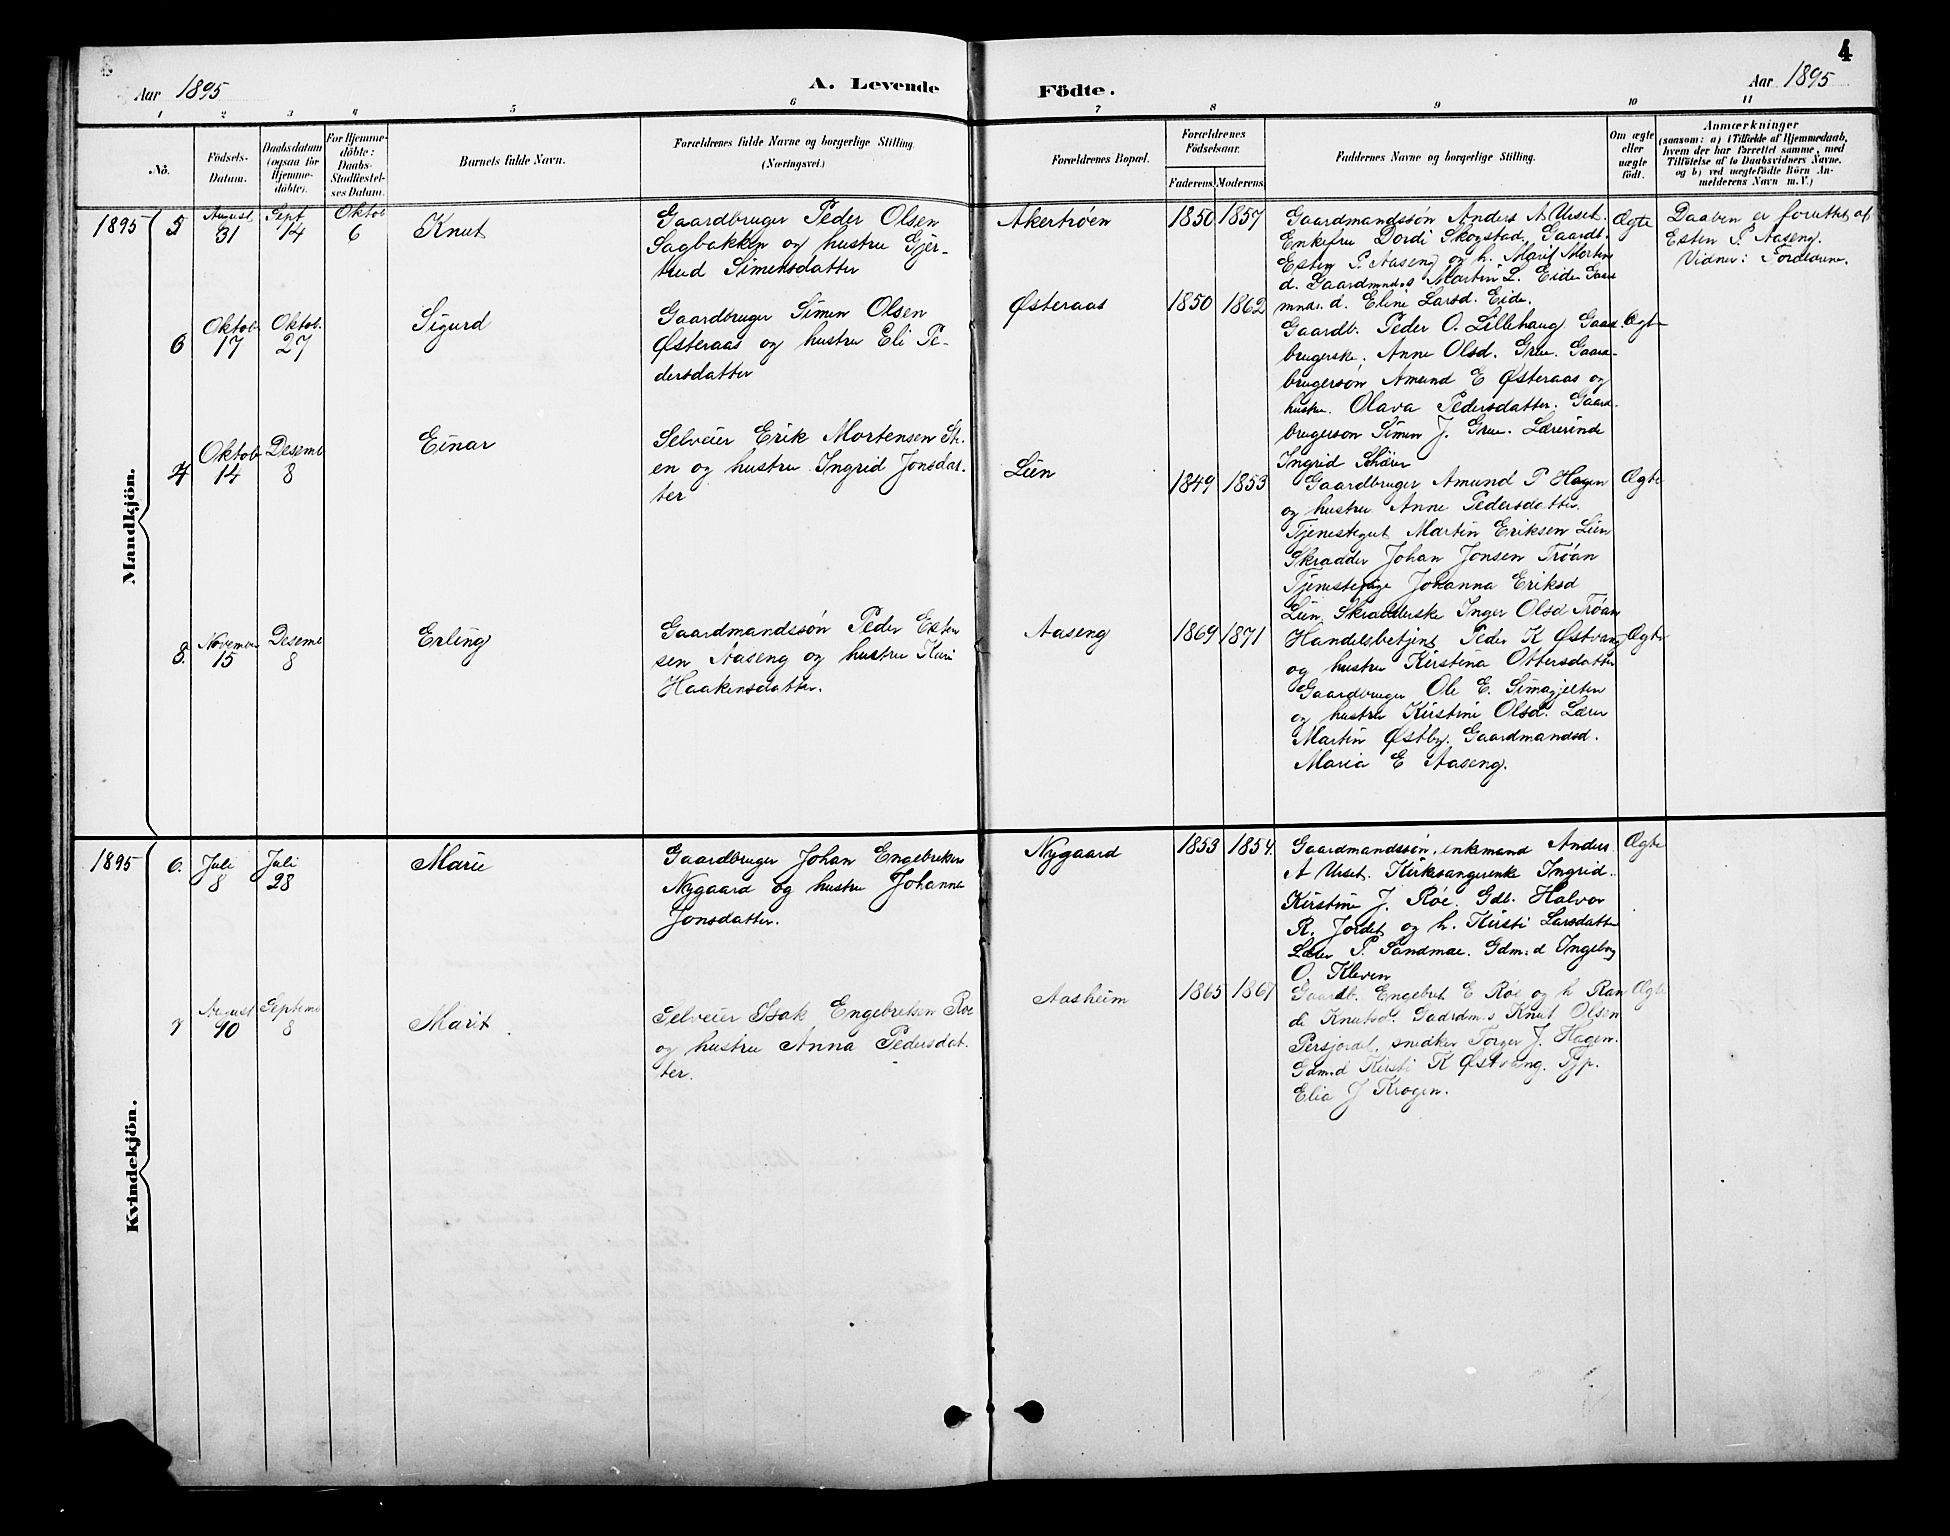 4
Aar 1895
A. Levende
Födte.
Aar 1895
1 2 3 4 5 6 7 8 9 10 11
Nö.
Födsels-
Datum.
Daabsdatum
(ogsaa for
Hjemme-
döbte).
For Hjemme-
döbte:
Daabs-
Stadfæstel-
ses Datum.
Barnets fulde Navn.
Forældrenes fulde Navne og borgerlige Stilling
(Næringsvei.)
Forældrenes Bopæl.
Forældrenes
Födselsaar.
Faderens. Moderens.
Faddernes Navne og borgerlige Stilling.
Om ægte
eller
uægte
födt.
Anmærkninger
(saasom: a) i Tilfælde af Hjemmedaab,
hvem der har forrettet samme, med
Tilföielse af to Daabsvidners Navne,
og b) ved uægtefödte Börn An-
melderens Navn m. V.)
Mandkjön.
1895
5
August
31
Sept
14
Oktob
6
Knut
Gaardbruger Peder Olsen
Sagbakken og hustru Gjer-
trud Simensdatter
Akertrøen
1850 1857
Gaardmandssøn Anders A Urset.
Enkefru Dordi Skogstad. Gaardb.
Esten P. Aaseng og h. Marit Morten
d. Gaardmnds Martin L. Eide Gaar
mnds. d. Eline Larsd. Eide.
Ægte
Daaben er forrettet af
Esten P. Aaseng.
Vidner: Forældrene.
6
Oktob.
17
Oktob.
27
Sigurd
Gaardbruger Simen Olsen
Østeraas og hustru Eli Pe-
dersdatter
Østeraas
1850 1862
Gaardb. Peder O. Lillehaug Gaar
brugerske. Anne Olsd. Grue. Gaard-
brugersøn Amund E Østeraas og
hustru. Olava Pedersdatter. Gaard-
brugersøn Simen J. Grue. Lærerinde
Ingrid
Ægte
7
Oktob
14
Desemb
8
Einar
Selveier Erik Mortensen
en og hustru Ingrid Jonsdat-
ter
Lien
1849 1853
Gaardbruger Amund P Hagen
og hustru Anne Pedersdatter.
Tjenestegut Martin Eriksen Lien
Skrædder Johan Jonsen Trøan
Tjenestepige Johanna Eriksd
Lien, Skrædderske Inger Olsd Trøan
Ægte
8.
Novembr
15
Desemb
8
Erling
Gaardmandssøn Peder Esten
sen Aaseng og hustru Kari
Haakensdatter.
Aaseng
1869 1871
Handelsbetjent Peder K Østvang
og hustru Kirstina Ottersdatter
Gaardbruger Ole E. Simagjelten
og hustru Kirstine Olsd. Lærer
Martin Østby. Gaardmandsd.
Maria E Aaseng.
Ægte
Kvindekjön.
1895
6.
Juli
8
Juli
28
Marie
Gaardbruger Johan Engebretsen
Nygaard og hustru Johanna
Jonsdatter.
Nygaard
1853 1854.
Gaardmandssøn, enkemand Anders
A Urset. Kirkesangerenke Ingrid.
Kirstine J. Røe. Gdb. Halvor
R. Jordet og h. Kirsti Larsdatter
Lærer P. Sandmæ. Gdm:d Ingeborg
O. Kleven
Ægte
7
August
10
Septemb
8
Marit
Selveier Isak Engebretsen Roe
og hustru Anna Pedersdat-
ter.
Aasheim
1865 1867
Gaardb. Engebret E Røe og h Ran
di Knutsd. Gaardm:s Knut Olsen
Persjordet, snedker Torger J. Hagen.
Gdm:d Kirsti K Østvang. Tjp.
Elia J Krogen.
Ægte